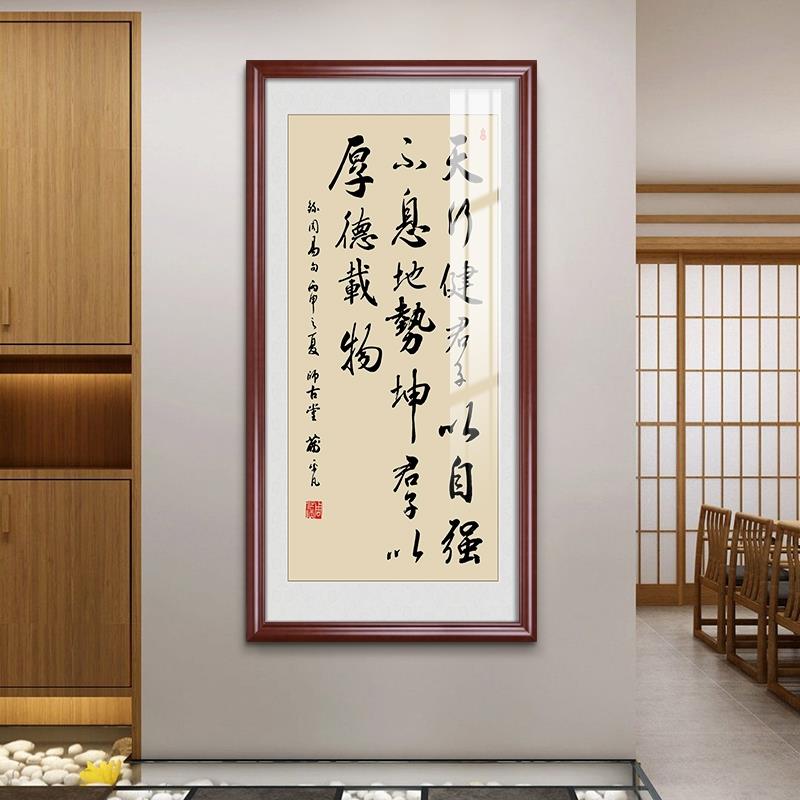 天行健君子以自强
不息地勢坤君子以
厚德載物
周易句丙申之夏師古堂平凡